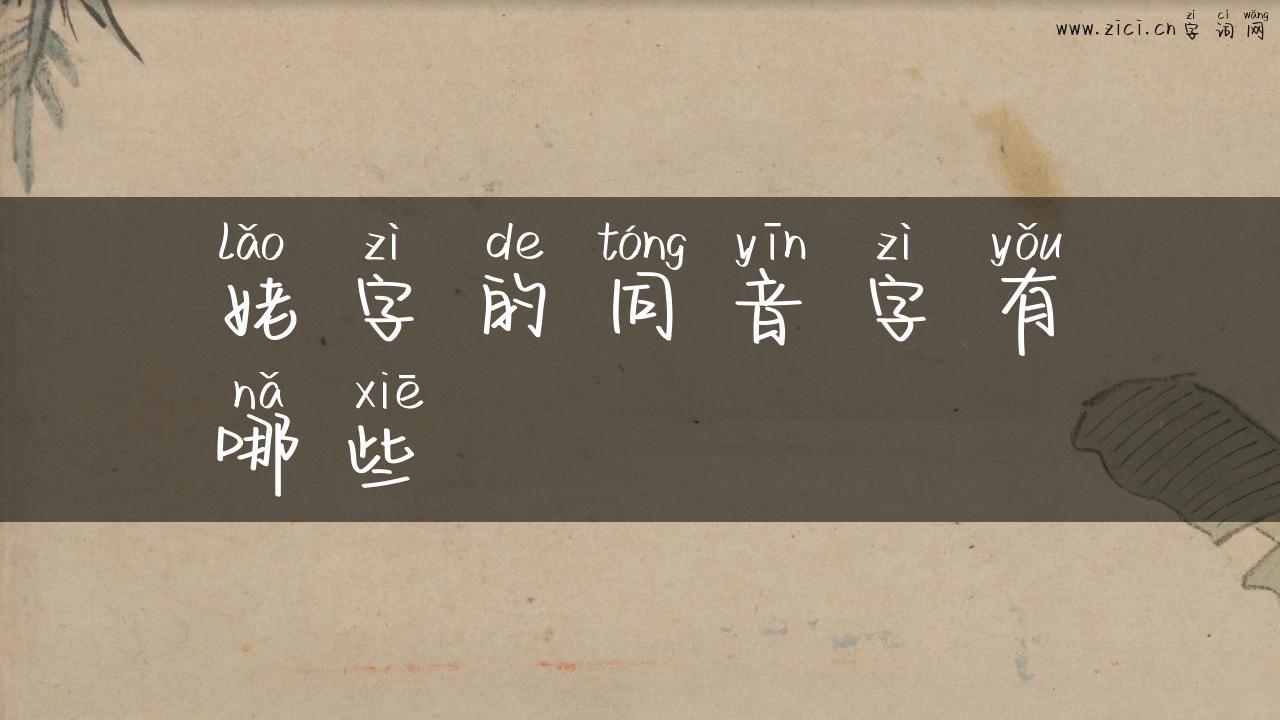 www.zici.cn 字词网
zì cí wǎng
lǎo zì de tóng yīn zì yǒu
姥字的同音字有
nǎ xiē
哪些